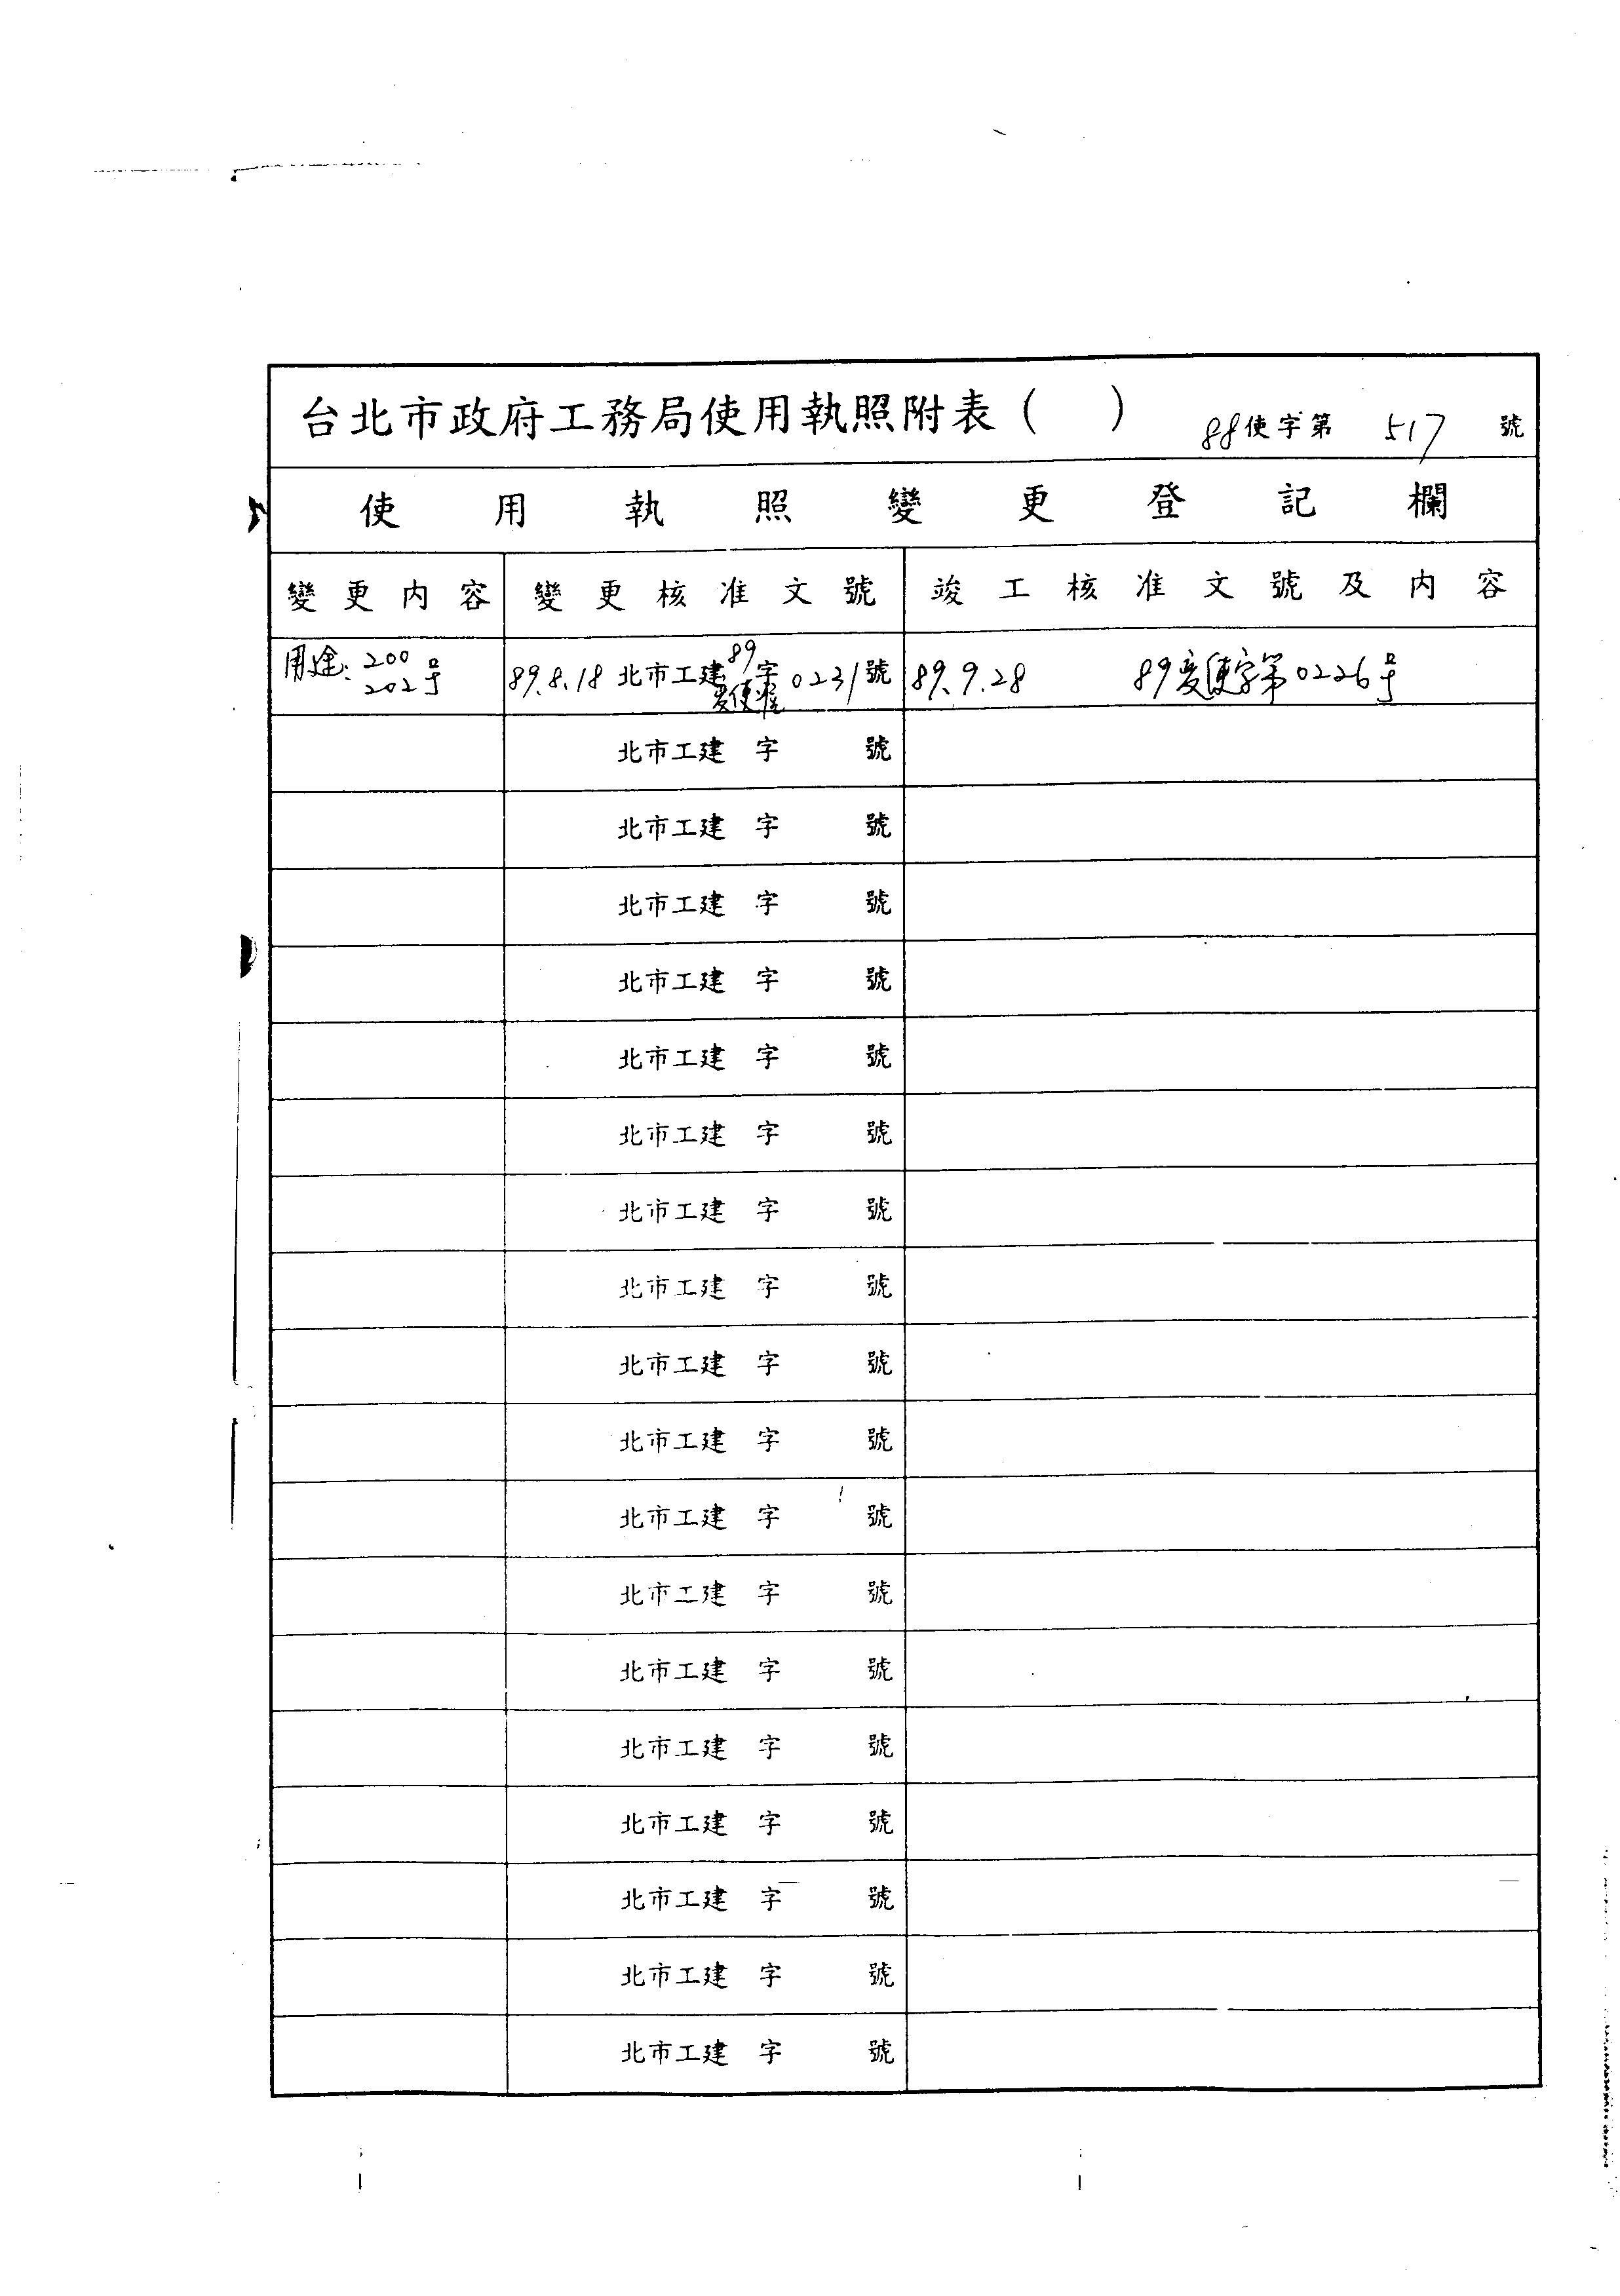 台北市政府工務局使用執照附表（　） 88使字第 517 號
使用執照變更登記欄
變更內容 變更核准文號 竣工核准文號及內容
用途: 200 202号 89.8.18 北市工建 89 字 變使准 0231 號 89.9.28 89變使字第0226号
北市工建 字 號
北市工建 字 號
北市工建 字 號
北市工建 字 號
北市工建 字 號
北市工建 字 號
北市工建 字 號
北市工建 字 號
北市工建 字 號
北市工建 字 號
北市工建 字 號
北市工建 字 號
北市工建 字 號
北市工建 字 號
北市工建 字 號
北市工建 字 號
北市工建 字 號
北市工建 字 號